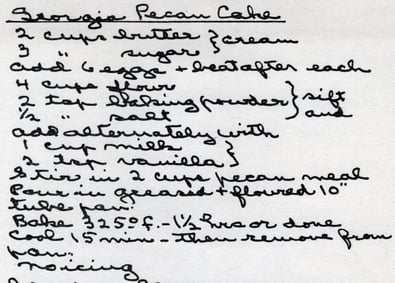 Georgia Pecan Cake
2 cups butter } cream
3 " sugar
add 6 eggs + beat after each
4 cups flour
2 tsp baking powder } sift
½ " salt and
add alternately with
1 cup milk
2 tsp vanilla }
Stir in 2 cups pecan meal
Pour in greased + floured 10"
tube pan.
Bake 325° f. - 1½ hrs or done
Cool 15 min - then remove from
pan.
no icing